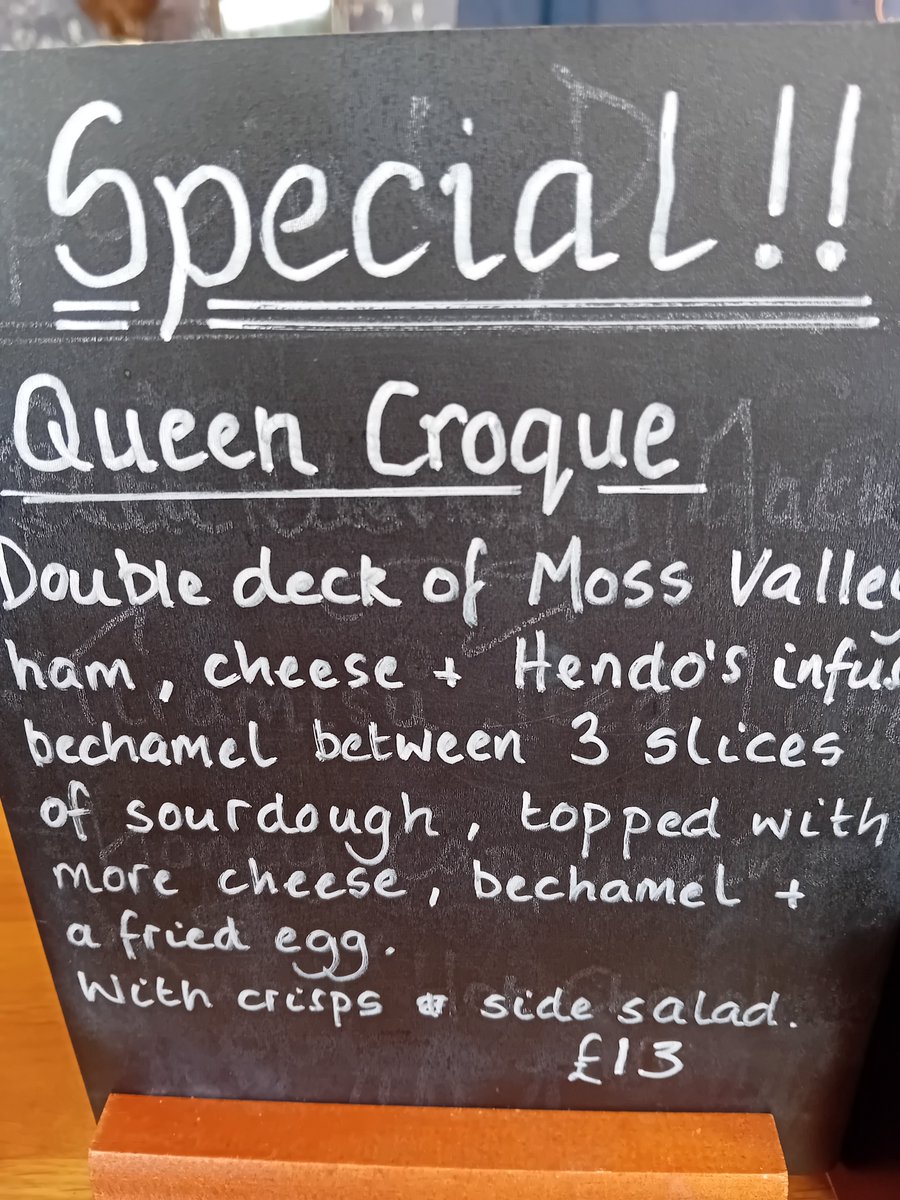 Special!!
Queen Croque
Double deck of Moss Valley
ham, cheese + Hendo's infus
bechamel between 3 slices
of sourdough, topped with
more cheese, bechamel +
a fried egg.
With crisps & side salad.
£13